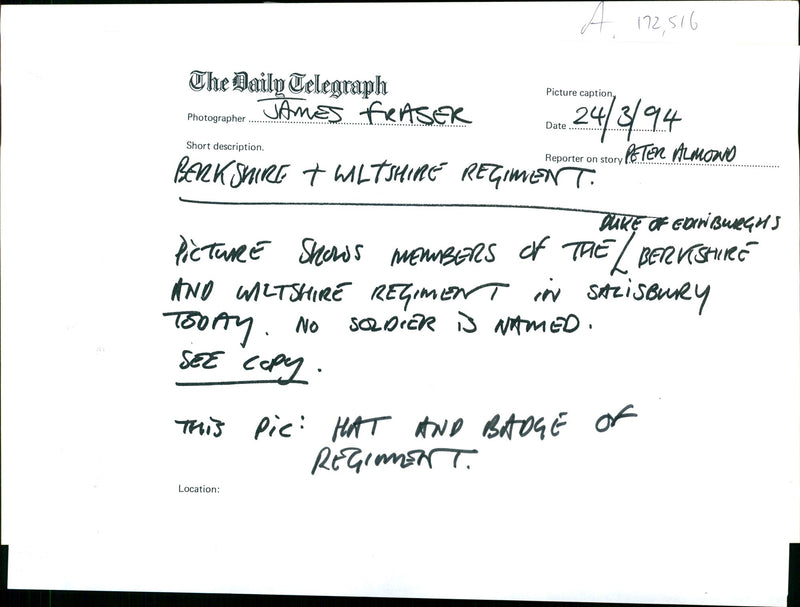 A. 172,516
The Daily Telegraph
Picture caption.
Photographer JAMES FRASER
Date 24/3/94
Short description.
Reporter on story PETER ALMOND
BERKSHIRE + WILTSHIRE REGIMENT.
DUKE OF EDINBURGHS
PICTURE SHOWS MEMBERS OF THE BERKSHIRE
AND WILTSHIRE REGIMENT IN SALISBURY
TODAY. NO SOLDIER IS NAMED.
SEE COPY.
THIS PIC: HAT AND BADGE OF
REGIMENT.
Location: